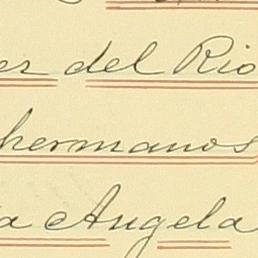 er del Rio
hermanos
a Angela